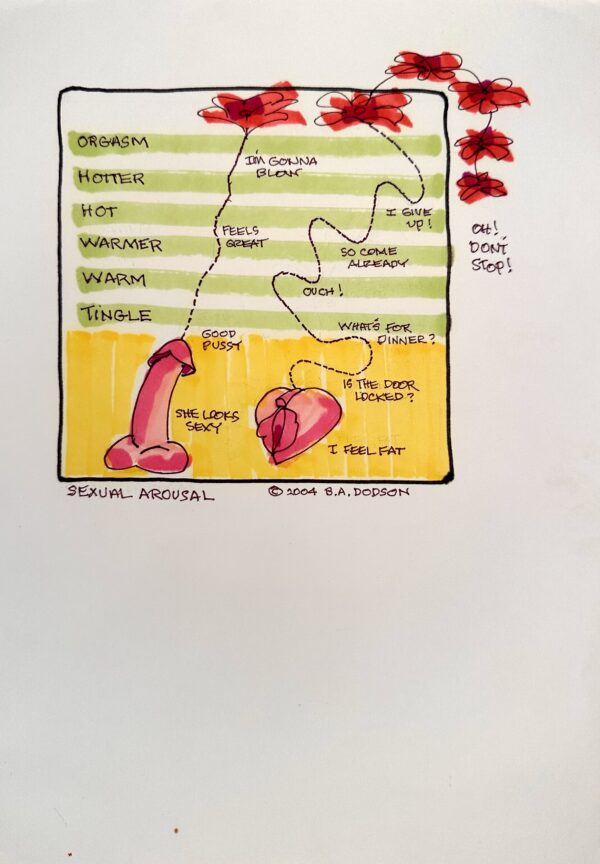 ORGASM
HOTTER
HOT
WARMER
WARM
TINGLE
I'M GONNA
BLOW
FEELS
GREAT
GOOD
PUSSY
SHE LOOKS
SEXY
I GIVE
UP!
SO COME
ALREADY
OUCH!
WHAT'S FOR
DINNER?
IS THE DOOR
LOCKED?
I FEEL FAT
OH!
DON'T
STOP!
SEXUAL AROUSAL
© 2004 B.A. DODSON